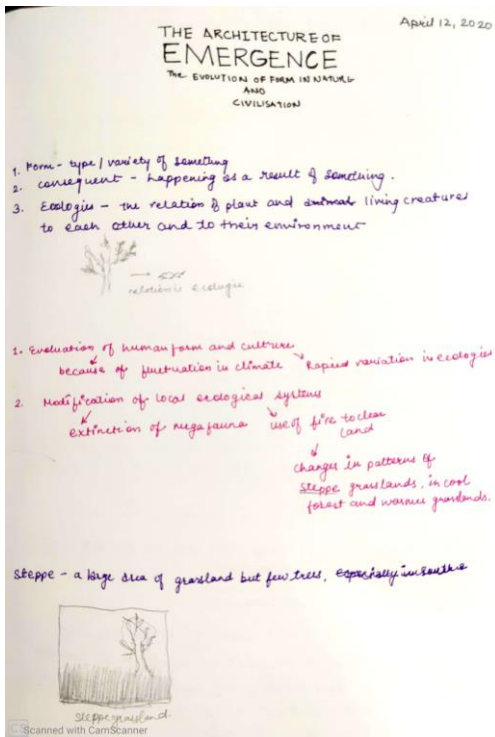 April 12, 2020
THE ARCHITECTURE OF
EMERGENCE
THE EVOLUTION OF FORM IN NATURE
AND
CIVILISATION
1. Form - type / variety of something
2. consequent - happening as a result of something.
3. Ecologies - the relation of plant and living creatures
to each other and to their environment
relation is ecologie
1. Evaluation of human form and culture
because of fluctuation in climate Rapied variation in ecologies
2. Modification of local ecological systems
extinction of megafauna use of fire to clear
land
changes in patterns of
steppe grasslands, in cool
forest and warmer grasslands.
Steppe - a large area of grassland but few trees, especially in
steppe grassland.
CS Scanned with CamScanner